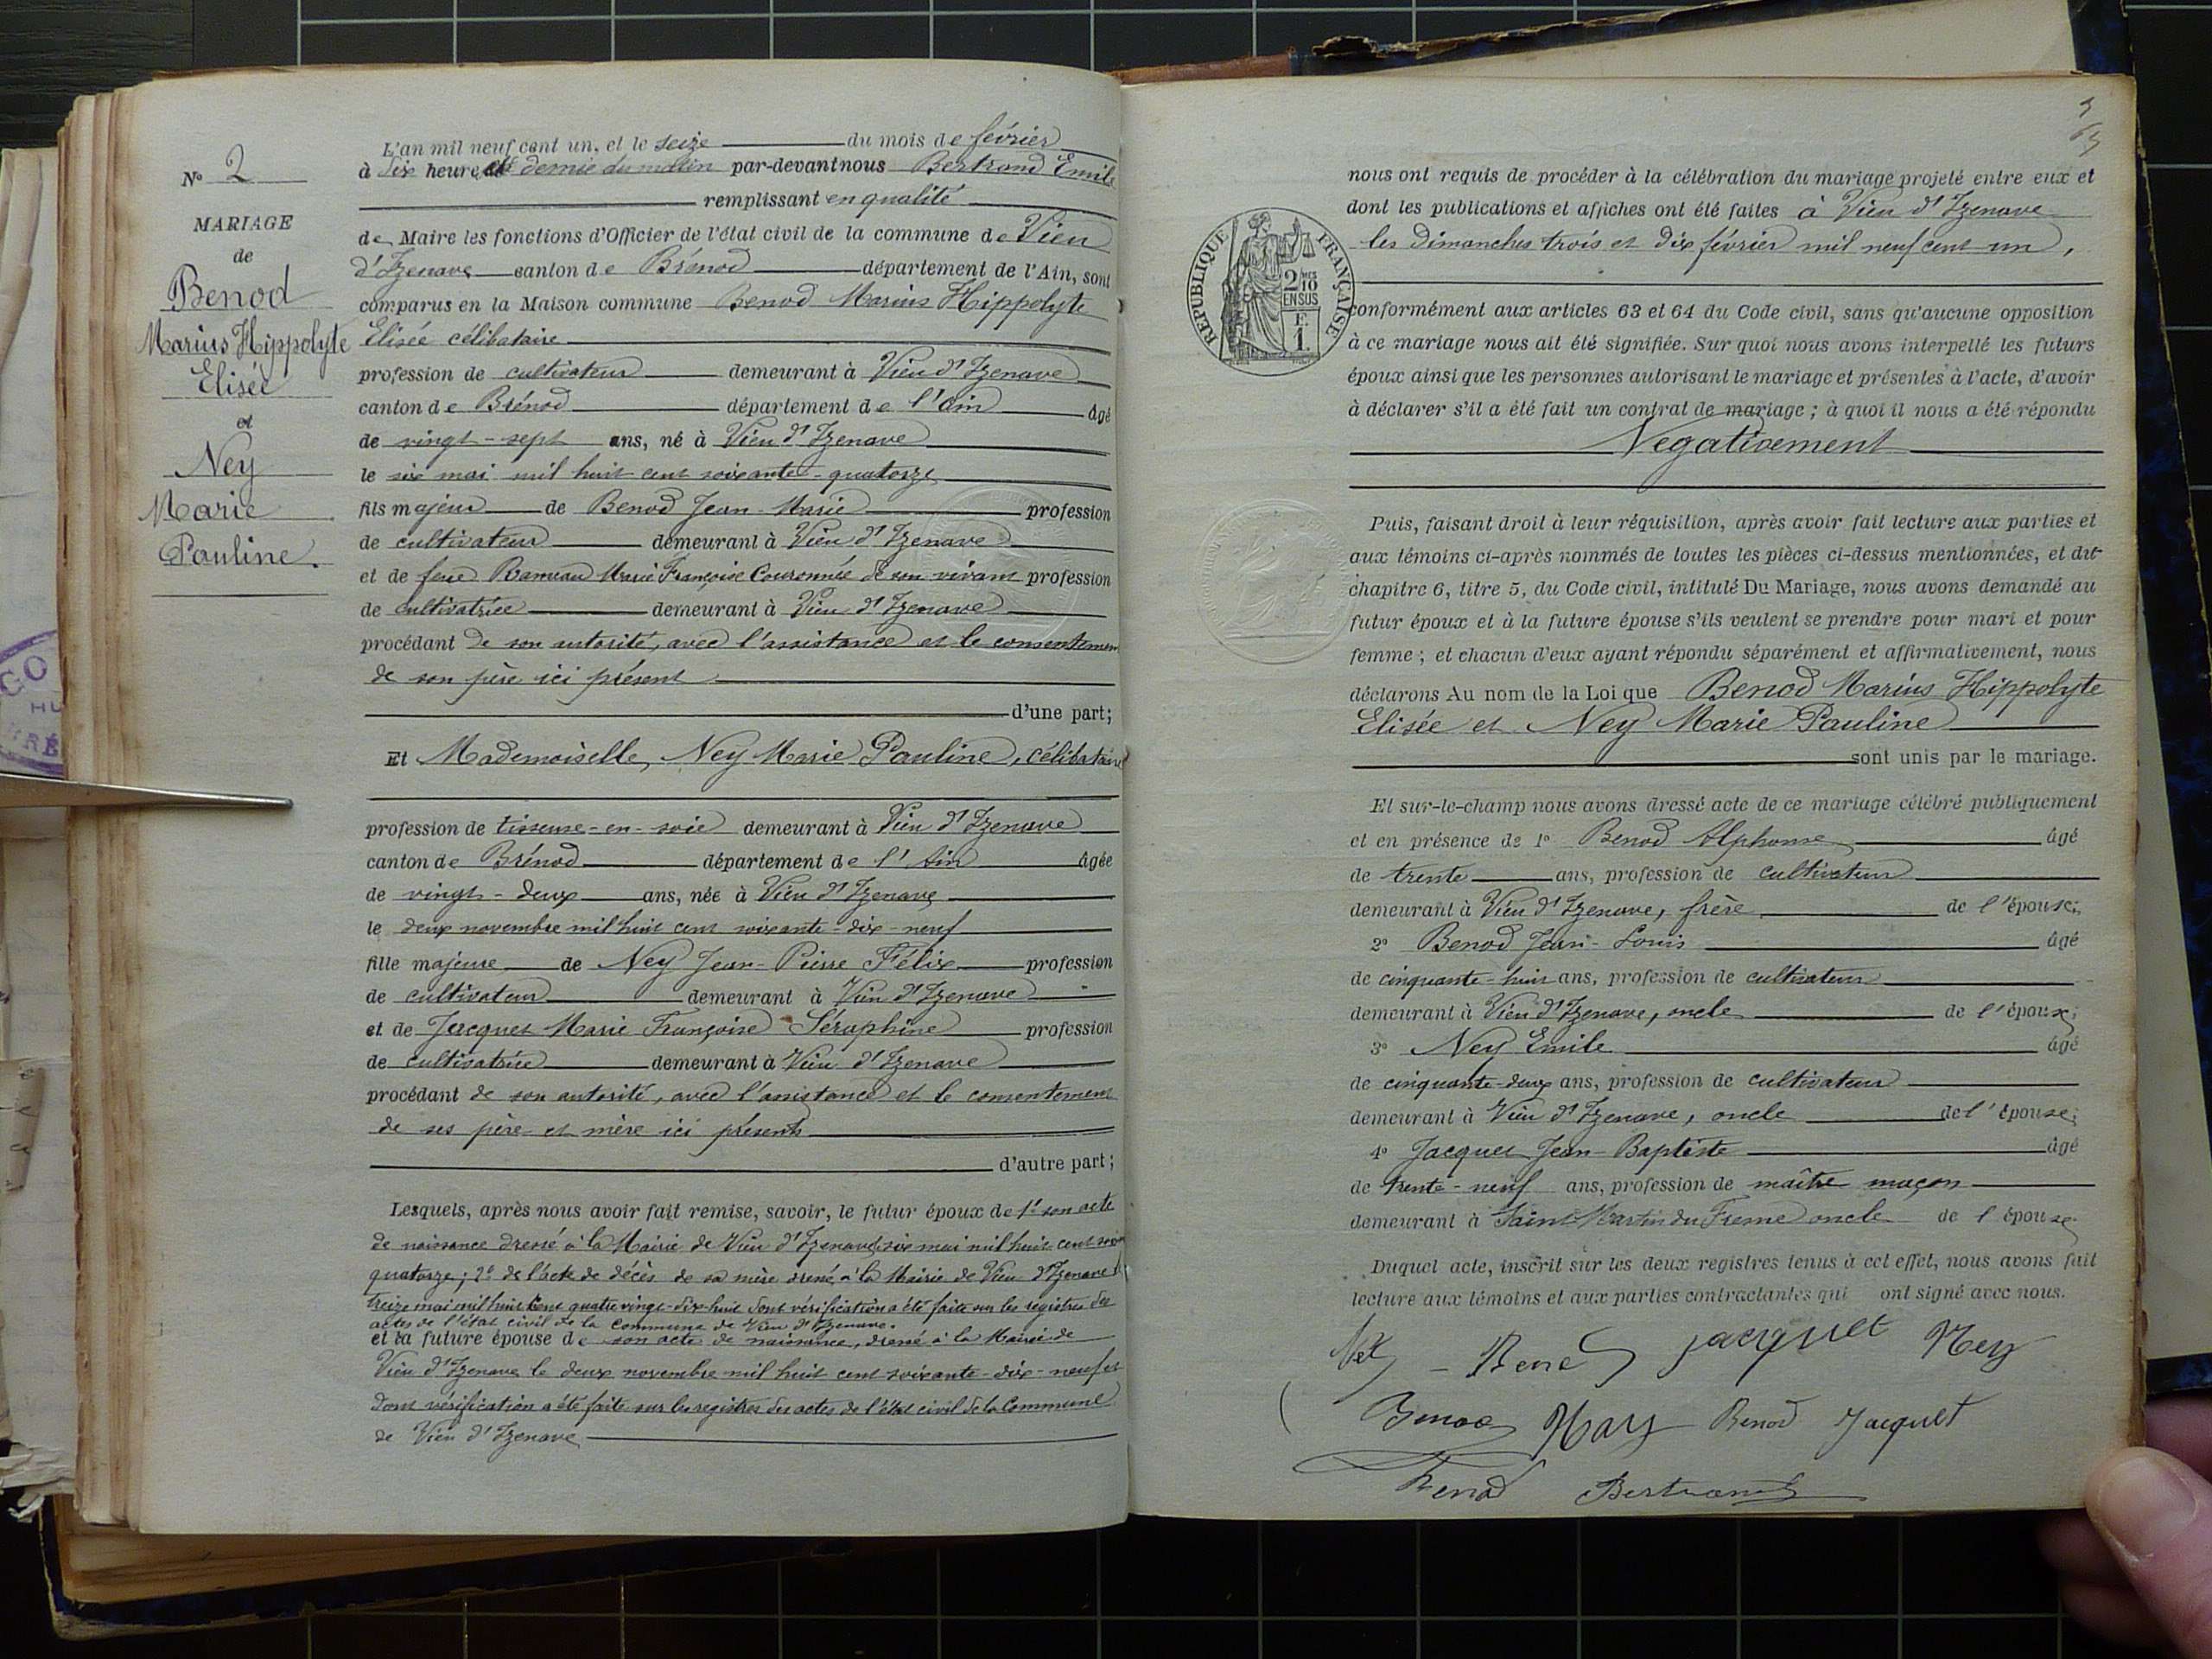 N° 2
MARIAGE
de
Benod
Marius Hippolyte
Elisée
et
Ney
Marie
Pauline.
L'an mil neuf cent un, et le seize du mois de février
à dix heures et demie du matin par-devant nous Bertrand Emile
remplissant en qualité
de Maire les fonctions d'Officier de l'état civil de la commune de Vieu
d'Izenave canton de Brénod département de l'Ain, sont
comparus en la Maison commune Benod Marius Hippolyte
Elisée célibataire
profession de cultivateur demeurant à Vieu d'Izenave
canton de Brénod département de l'Ain âgé
de vingt-sept ans, né à Vieu d'Izenave
le six mai mil huit cent soixante-quatorze
fils majeur de Benod Jean-Marie profession
de cultivateur demeurant à Vieu d'Izenave
et de feue Rameau Marie Françoise Couronnée de son vivant profession
de cultivatrice demeurant à Vieu d'Izenave
procédant de son autorité, avec l'assistance et le consentement
de son père ici présent
d'une part;
Et Mademoiselle, Ney Marie Pauline, célibataire
profession de tisseuse-en-soie demeurant à Vieu d'Izenave
canton de Brénod département de l'Ain âgée
de vingt-deux ans, née à Vieu d'Izenave
le deux novembre mil huit cent soixante-dix-neuf
fille majeure de Ney Jean-Pierre Félix profession
de cultivateur demeurant à Vieu d'Izenave
et de Jacquet Marie Françoise Séraphine profession
de cultivatrice demeurant à Vieu d'Izenave
procédant de son autorité, avec l'assistance et le consentement
de ses père et mère ici présents
d'autre part;
Lesquels, après nous avoir fait remise, savoir, le futur époux de 1° son acte
de naissance dressé à la Mairie de Vieu d'Izenave le six mai mil huit cent
quatorze; 2° de l'acte de décès de sa mère dressé à la Mairie de Vieu d'Izenave
treize mai mil huit cent quatre vingt-dix-huit dont vérification a été faite sur les registres des
actes de l'état civil de la Commune de Vieu d'Izenave.
et la future épouse de son acte de naissance, dressé à la Mairie de
Vieu d'Izenave le deux novembre mil huit cent soixante-dix-neuf et
dont vérification a été faite sur les registres des actes de l'état civil de la Commune
de Vieu d'Izenave
nous ont requis de procéder à la célébration du mariage projeté entre eux et
dont les publications et affiches ont été faites à Vieu d'Izenave
les Dimanches trois et dix février mil neuf cent un,
RÉPUBLIQUE FRANÇAISE
2/10
EN SUS
F.
1.
conformément aux articles 63 et 64 du Code civil, sans qu'aucune opposition
à ce mariage nous ait été signifiée. Sur quoi nous avons interpellé les futurs
époux ainsi que les personnes autorisant le mariage et présentes à l'acte, d'avoir
à déclarer s'il a été fait un contrat de mariage; à quoi il nous a été répondu
Negativement
Puis, faisant droit à leur réquisition, après avoir fait lecture aux parties et
aux témoins ci-après nommés de toutes les pièces ci-dessus mentionnées, et du
chapitre 6, titre 5, du Code civil, intitulé Du Mariage, nous avons demandé au
futur époux et à la future épouse s'ils veulent se prendre pour mari et pour
femme; et chacun d'eux ayant répondu séparément et affirmativement, nous
déclarons Au nom de la Loi que Benod Marius Hippolyte
Elisée et Ney Marie Pauline
sont unis par le mariage.
Et sur-le-champ nous avons dressé acte de ce mariage célébré publiquement
et en présence de 1° Benod Alphonse âgé
de trente ans, profession de cultivateur
demeurant à Vieu d'Izenave, frère de l'épouse;
2° Benod Jean-Louis âgé
de cinquante-huit ans, profession de cultivateur
demeurant à Vieu d'Izenave, oncle de l'époux;
3° Ney Emile âgé
de cinquante-deux ans, profession de cultivateur
demeurant à Vieu d'Izenave, oncle de l'épouse;
4° Jacquet Jean-Baptiste âgé
de trente-neuf ans, profession de maître maçon
demeurant à Saint Martin du Fresne oncle de l'épouse
Duquel acte, inscrit sur les deux registres tenus à cet effet, nous avons fait
lecture aux témoins et aux parties contractantes qui ont signé avec nous.
Ney Benod Jacquet Ney
Benod Ney Benod Jacquet
Benod Bertrand